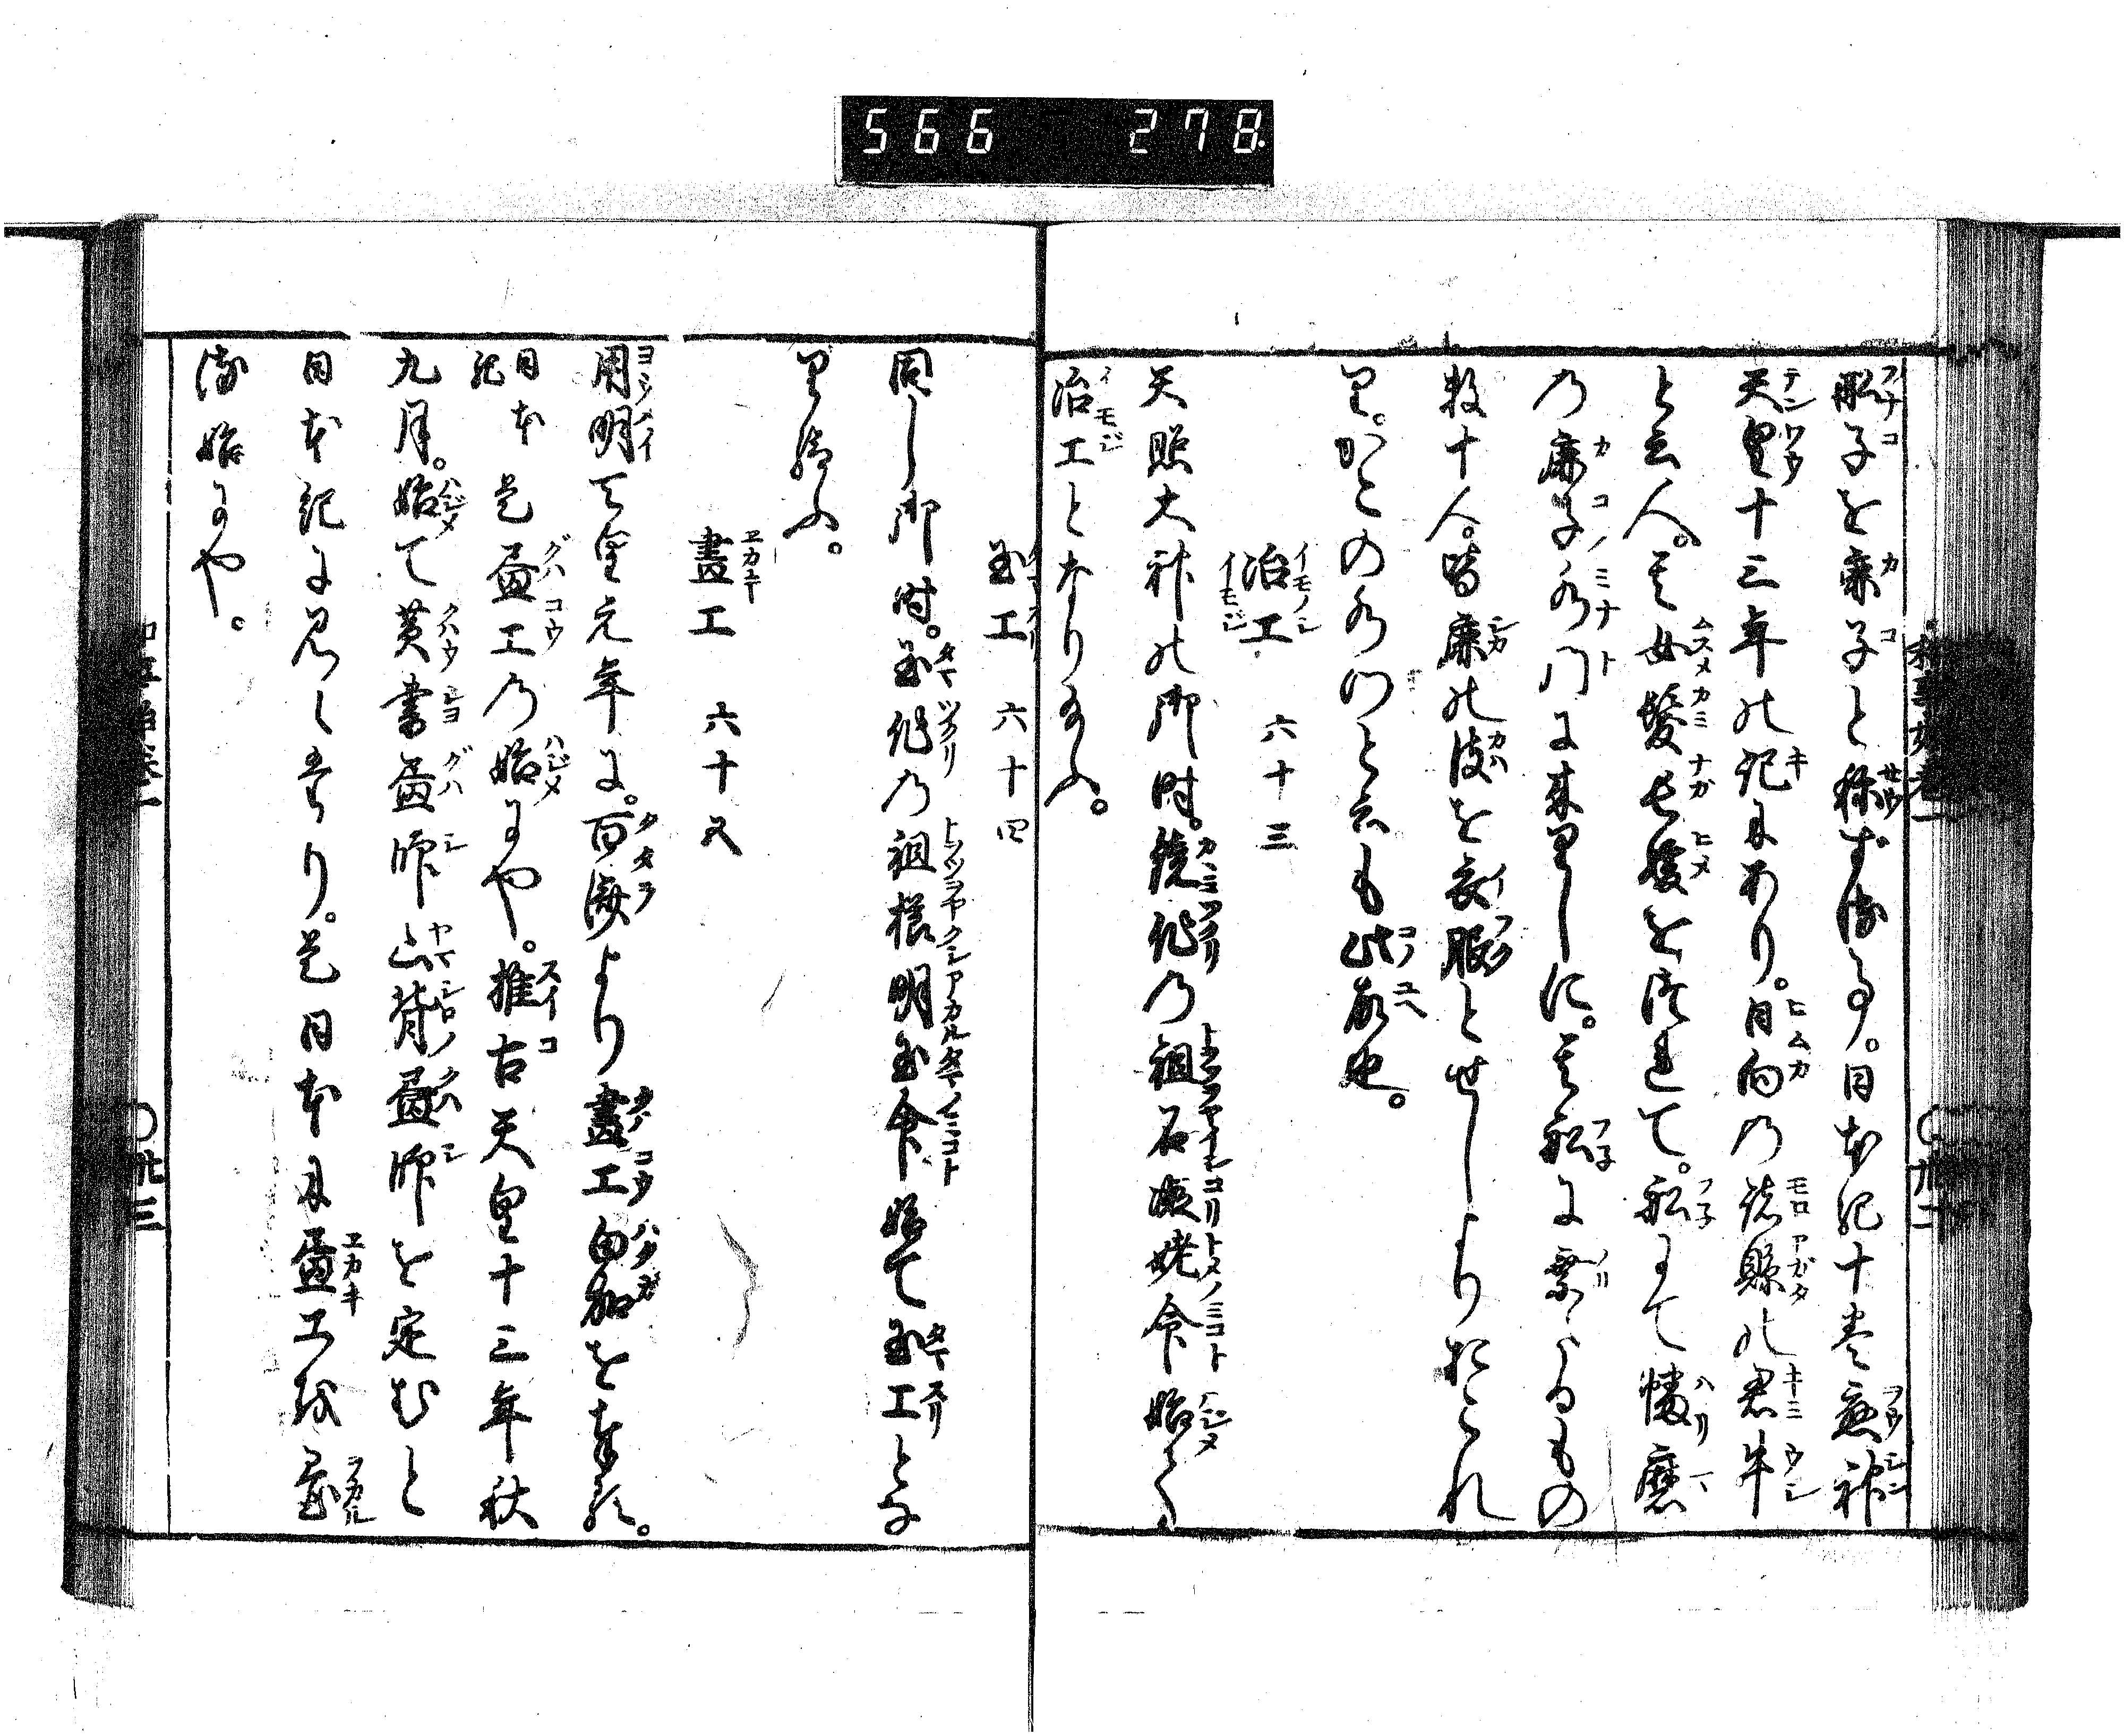 566 278
舩子を鹿子と稱ずる事。日本紀十巻應神
天皇十三年の記にあり。日向の諸縣の君牛
と云人。其女髪長媛を湟れて。舩にて幡磨
の鹿子水門に来りしに。其舩に乗たるもの
数十人。皆鹿の皮を衣服とせしよりおこれ
り。かこの水門と云も此故也。
冶工 六十三
天照大神の御時。鏡作の祖石凝姥命始て
冶工となり給ふ。
玉工 六十四
同し御時。玉作の祖櫛明玉命始て玉工とな
り給ふ。
畫工 六十五
用明天皇元年に。百済より畫工白加を奉る。
日本紀 是畫工の始にや。推古天皇十三年秋
九月。始て黄書畫師山背畫師を定むと
日本紀に見えたり。是日本に畫工或
流始にや。